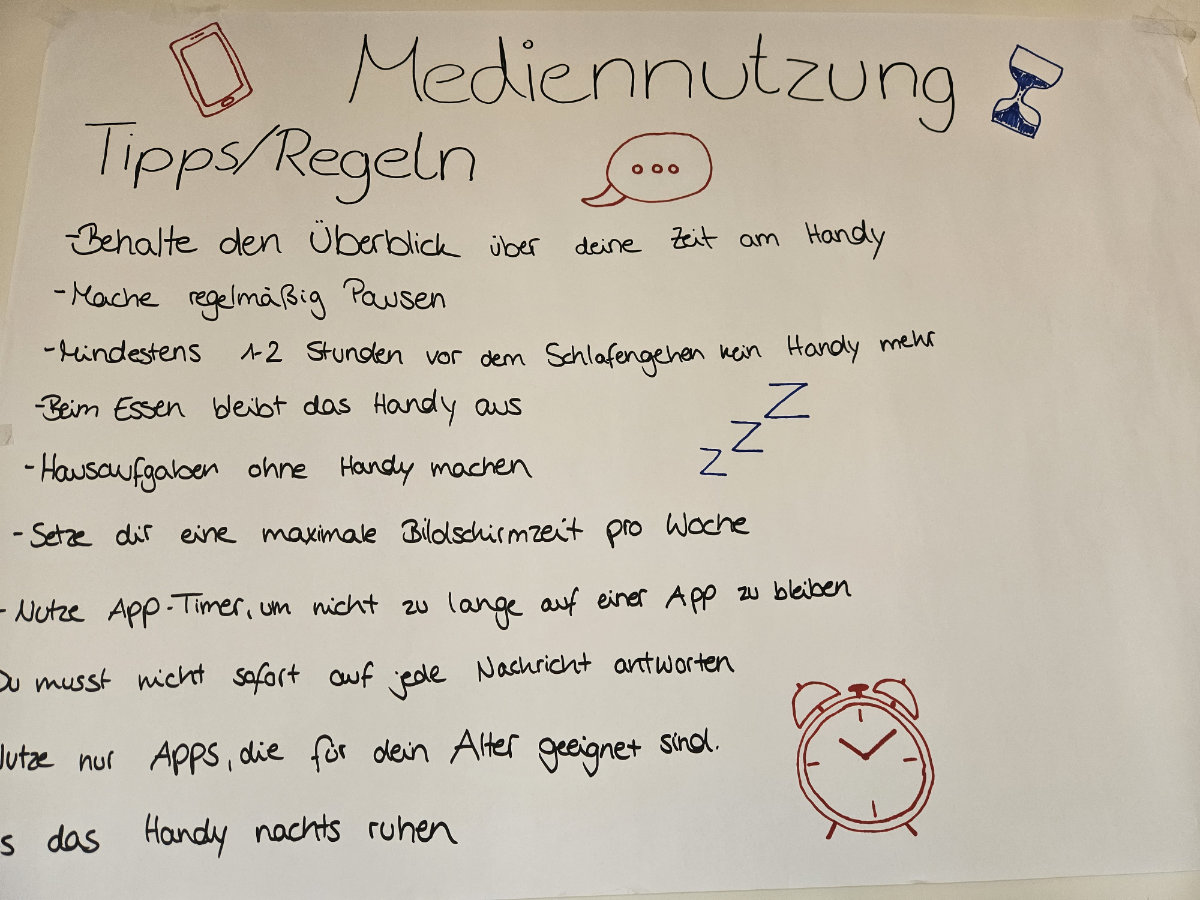 Mediennutzung
Tipps/Regeln
-Behalte den Überblick über deine Zeit am Handy
-Mache regelmäßig Pausen
-Mindestens 1-2 Stunden vor dem Schlafengehen kein Handy mehr
-Beim Essen bleibt das Handy aus
Z
Z
Z
-Hausaufgaben ohne Handy machen
-Setze dir eine maximale Bildschirmzeit pro Woche
-Nutze App-Timer, um nicht zu lange auf einer App zu bleiben
Du musst nicht sofort auf jede Nachricht antworten
Nutze nur Apps, die für dein Alter geeignet sind.
s das Handy nachts ruhen